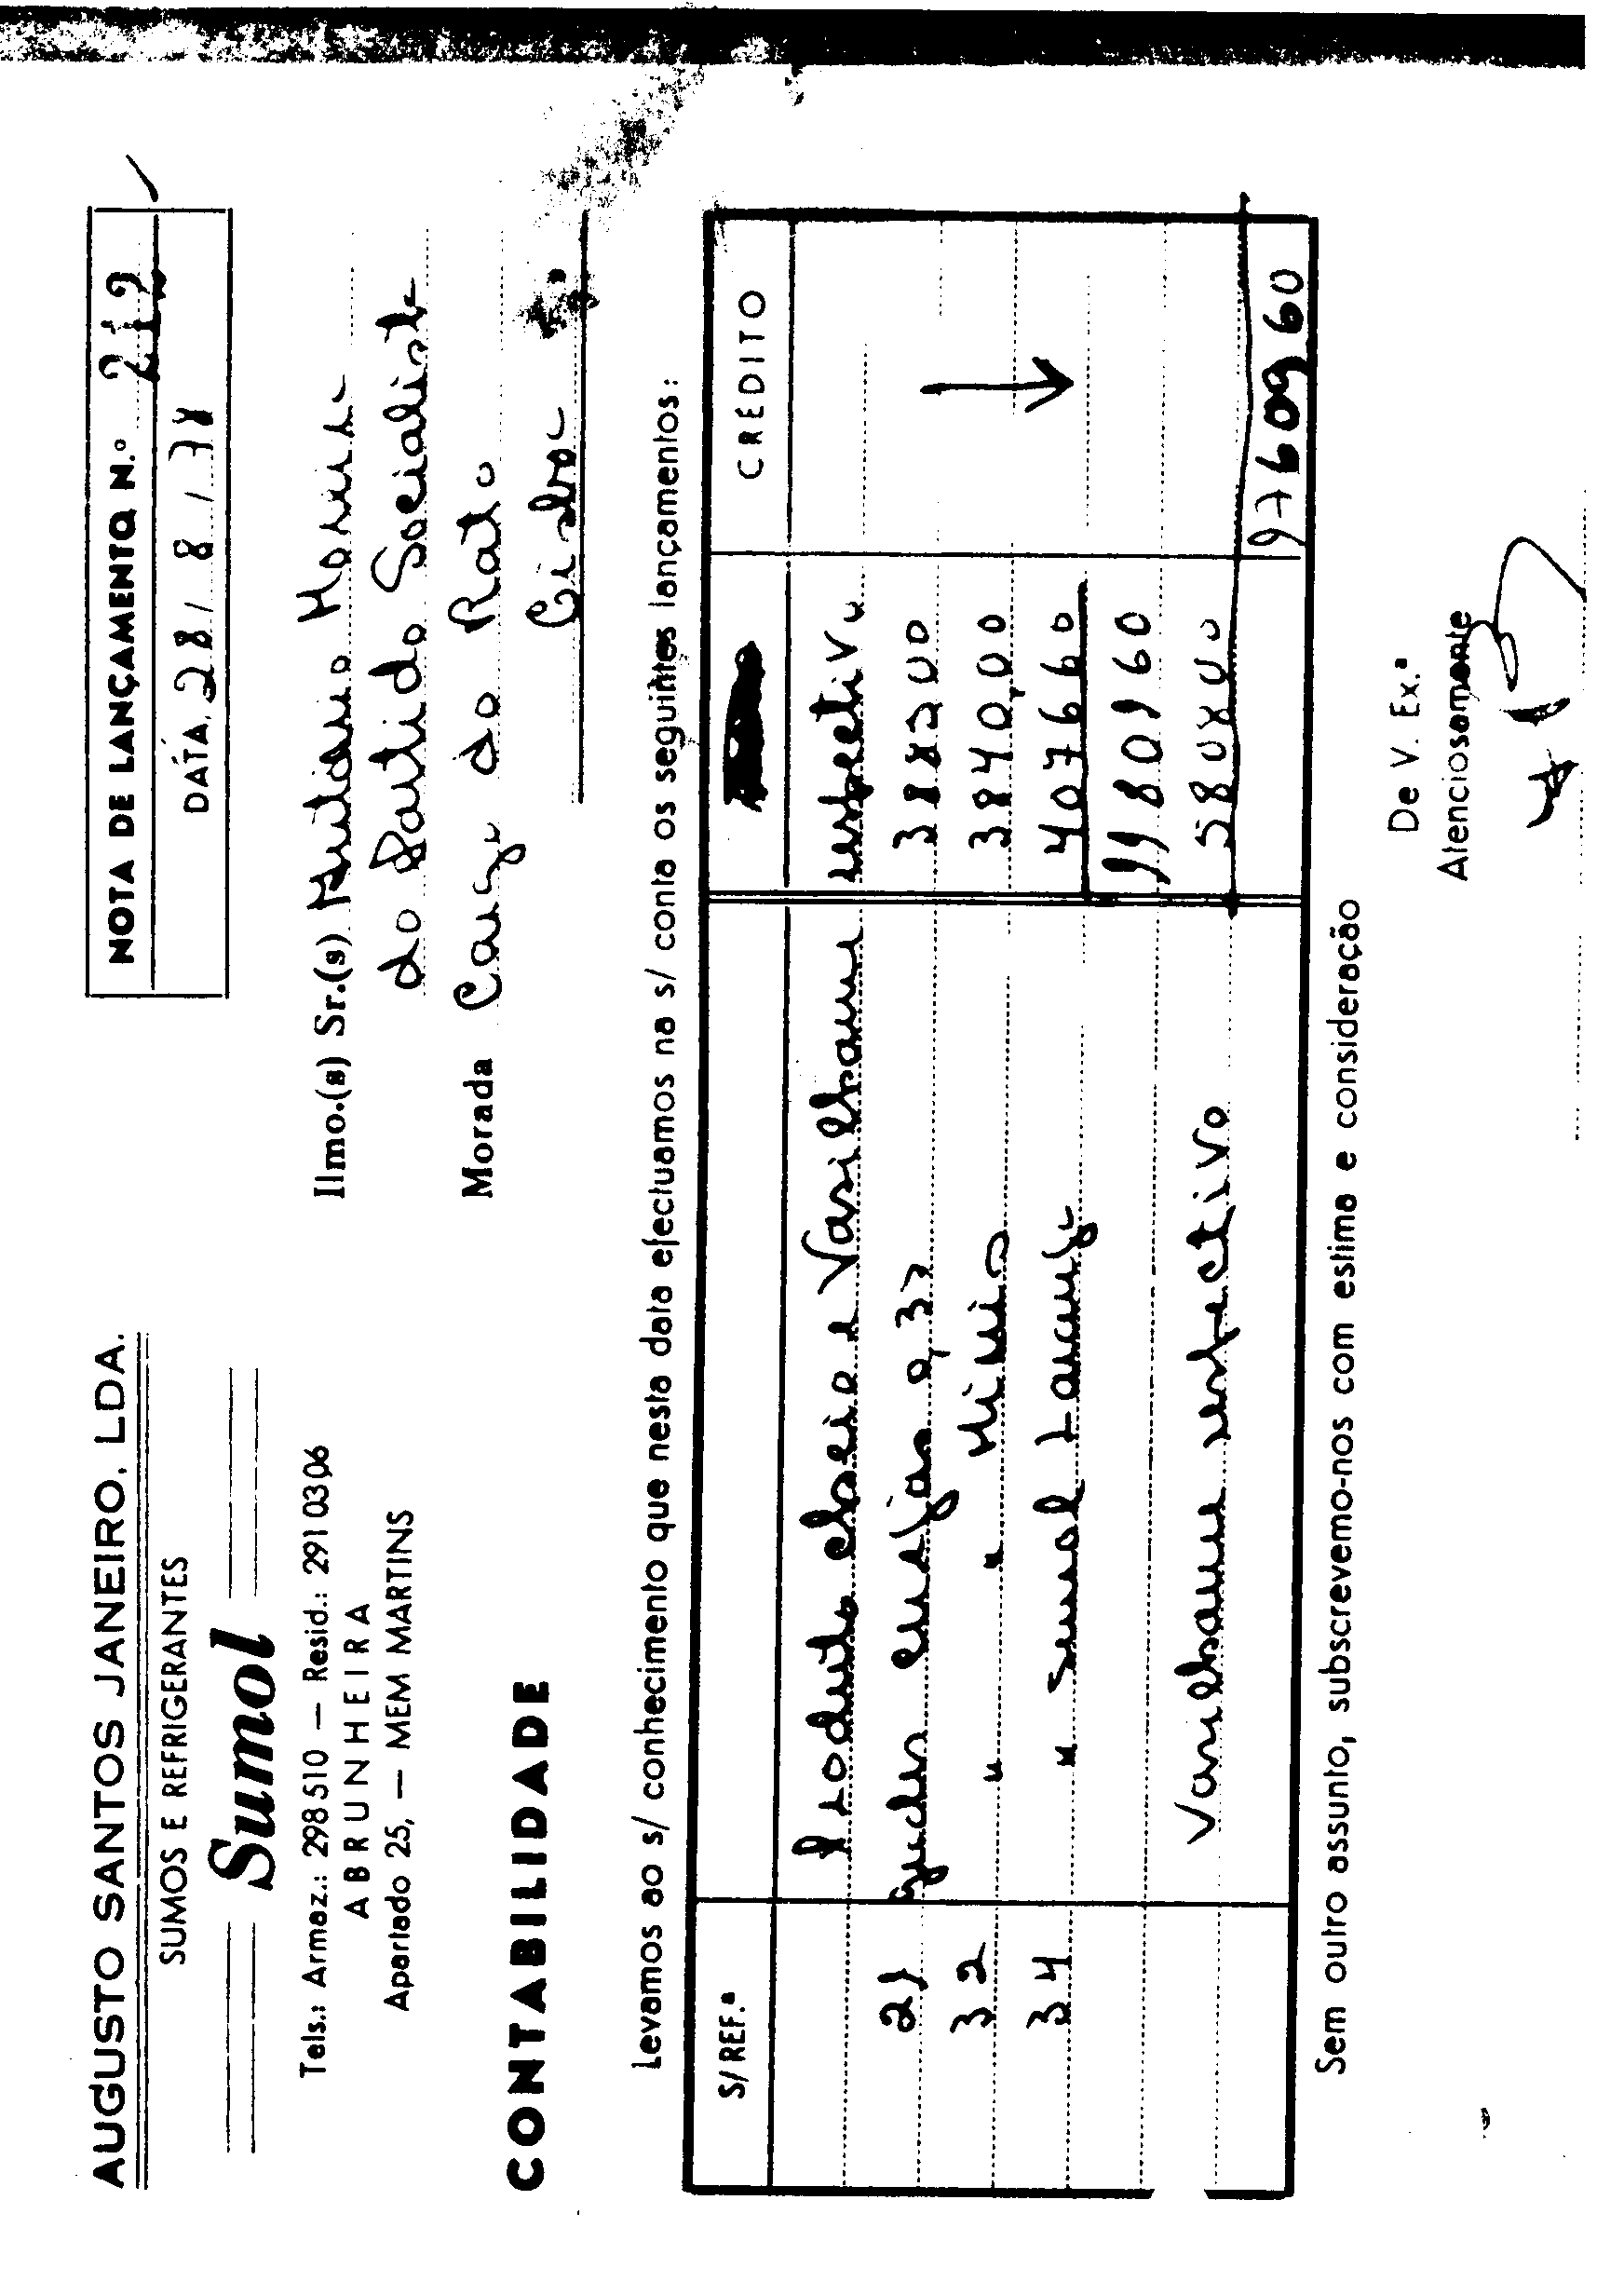 AUGUSTO SANTOS JANEIRO, LDA.
SUMOS E REFRIGERANTES
Sumol
Tels.: Armaz.: 298510 — Resid.: 2910306
ABRUNHEIRA
Apartado 25, — MEM MARTINS
CONTABILIDADE
NOTA DE LANÇAMENTO N.º 212
DATA, 28/8/78
Ilmo.(s) Sr.(s)
do Partido Socialista
Morada Largo do Rato
Lisboa
Levamos ao s/ conhecimento que nesta data efectuamos na s/ conta os seguintes lançamentos:
S/REF.ª CRÉDITO
Producto cheio e Vasilhame respectivo
21 0,33 388200
32 " " 384000
34 " Sumol 407660
1180160
Vasilhame respectivo 580800
9760960
Sem outro assunto, subscrevemo-nos com estima e consideração
De V. Ex.ª
Atenciosamente